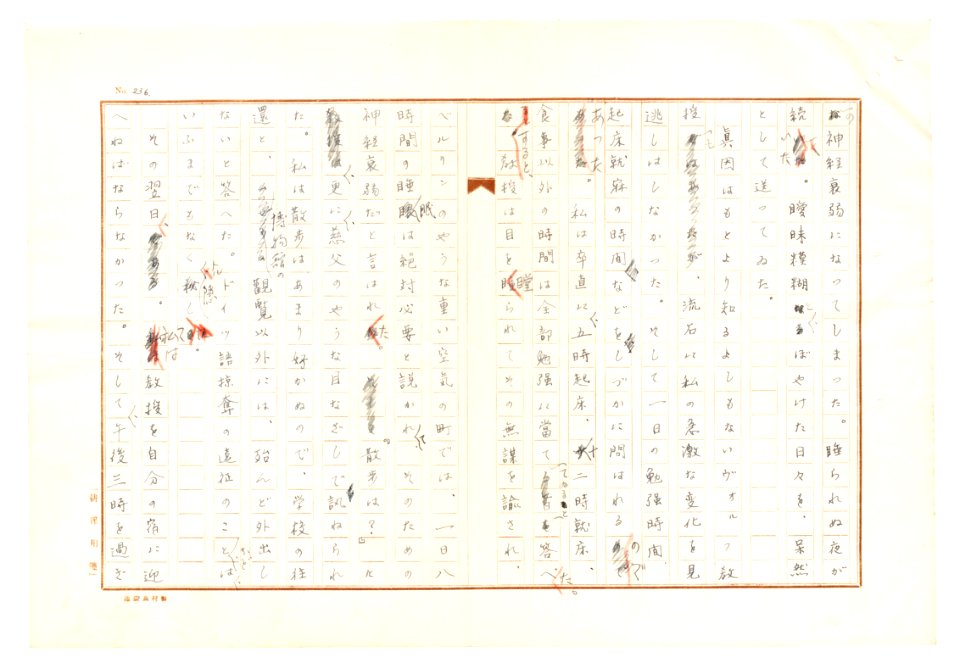 No. 236.
神経衰弱になってしまった。睡られぬ夜が
続いた。曖昧模糊ぼやけた日々を、呆然
として送ってゐた。
真因はもとより知るよしもないヴォルフ教
授も、流石に私の急激な変化を見
逃しはしなかった。そして一日の勉強時間、
起床就寐の時間などをしづかに問はれるので
あった。私は卒直に五時起床、十二時就床、
食事以外の時間は全部勉強に當ててゐると答へた。
すると、教授は目を瞠られてその無謀を諭され、
ベルリンのやうな重い空気の町では、一日八
時間の睡眠は絶対必要と説かれ、そのための
神経衰弱だと言はれた。『散歩は?』と
更に慈父のやうな目なざしで訊ねられ
た。私は散歩はあまり好かぬので、学校の往
還と、博物館の観覧以外には、殆んど外出し
ないと答へた。ドイツ語掠奪の遠征のことは
いふまでもなく秘し隠して。
その翌日、私は教授を自分の宿に迎
へねばならなかった。そして午後三時を過ぎ